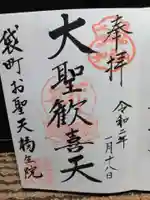 奉拝
令和二年
一月十八日
大聖歓喜天
袋町お聖天